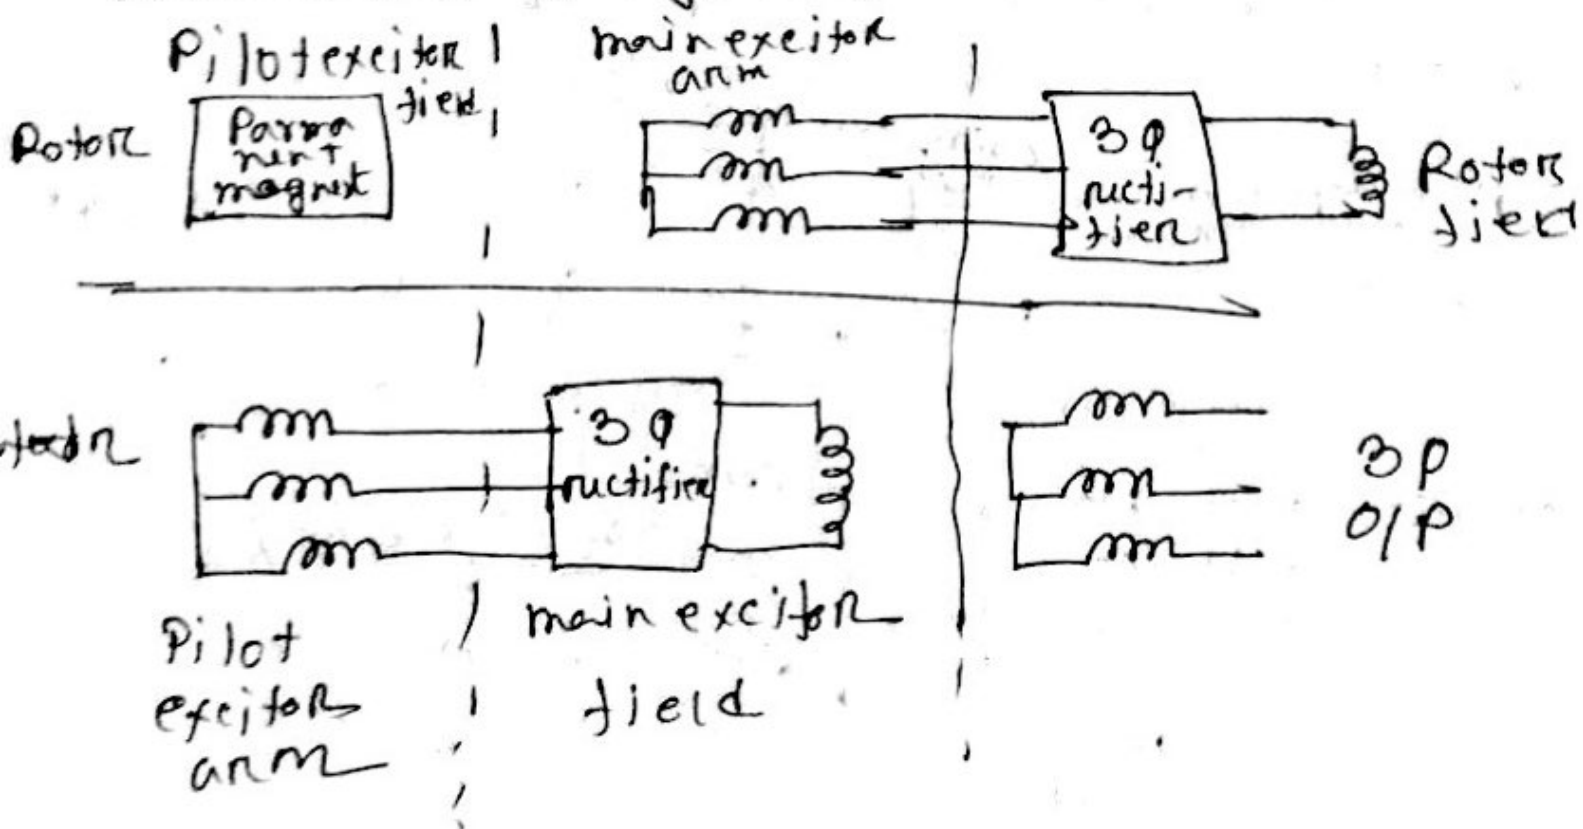 Pilot excitor
field
main excitor
arm
Rotor
Parma
nent
magnet
3φ
ructi-
fier
Rotor
field
3φ
ructifier
3φ
O/P
Pilot
excitor
arm
main excitor
field